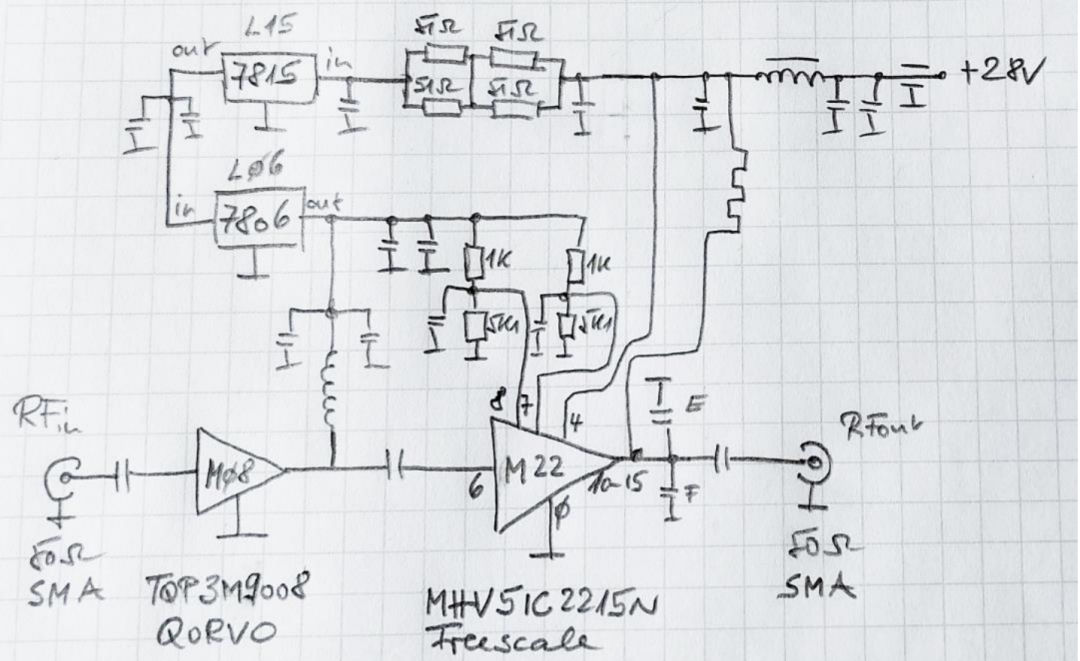 L15
51Ω 51Ω
out 7815 in
51Ω 51Ω
+28V
LØ6
in 7806 out
1K 1K
5K1 5K1
8 7 4
E
RFin
RFout
MØ8
M22
6
10-15
Ø
F
50Ω
SMA
50Ω
SMA
TQP3M9008
QORVO
MHV5IC2215N
Freescale